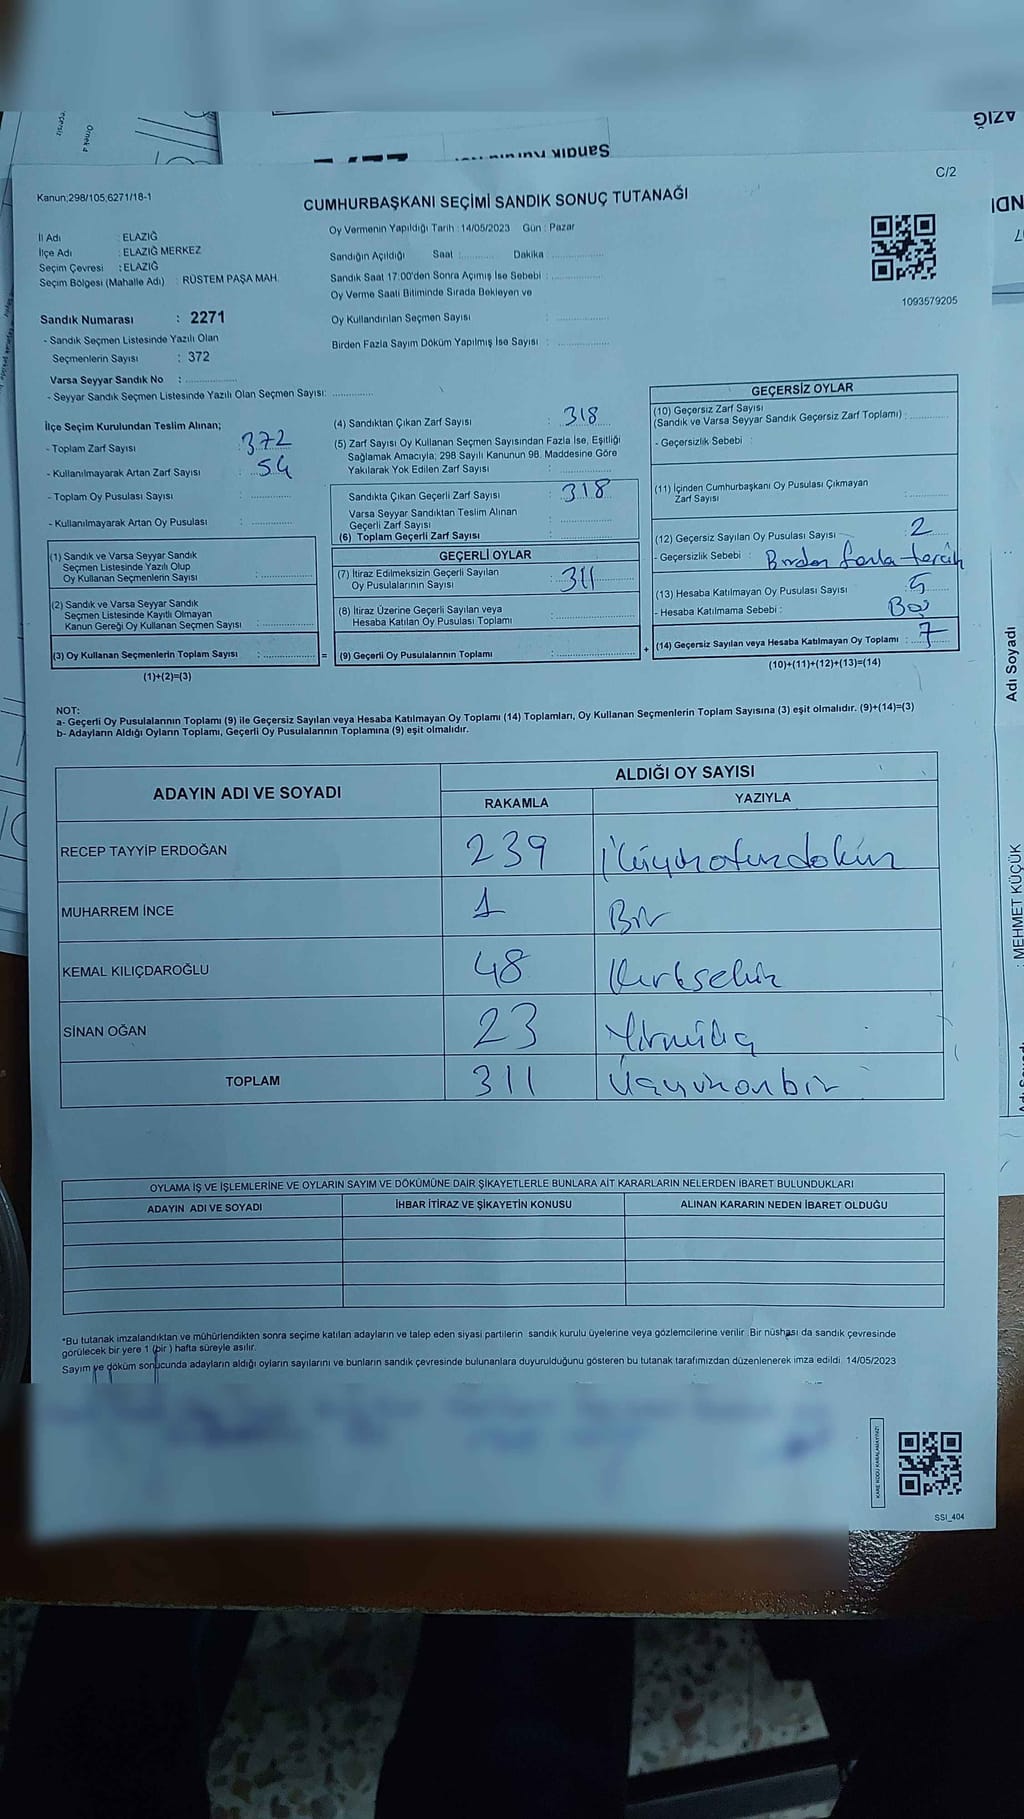 AZIĞ
Sandık Kurulu
C/2
Kanun;298/105,6271/18-1
CUMHURBAŞKANI SEÇİMİ SANDIK SONUÇ TUTANAĞI
İl Adı : ELAZIĞ
İlçe Adı : ELAZIĞ MERKEZ
Seçim Çevresi : ELAZIĞ
Seçim Bölgesi (Mahalle Adı) : RÜSTEM PAŞA MAH.
Oy Vermenin Yapıldığı Tarih : 14/05/2023 Gün : Pazar
Sandığın Açıldığı Saat :............ Dakika :................
Sandık Saat 17:00'den Sonra Açımış İse Sebebi : ................
Oy Verme Saati Bitiminde Sırada Bekleyen ve
Oy Kullandırılan Seçmen Sayısı : ................
Birden Fazla Sayım Döküm Yapılmış İse Sayısı : ................
1093579205
Sandık Numarası : 2271
- Sandık Seçmen Listesinde Yazılı Olan
Seçmenlerin Sayısı : 372
Varsa Seyyar Sandık No : ................
- Seyyar Sandık Seçmen Listesinde Yazılı Olan Seçmen Sayısı: ............
İlçe Seçim Kurulundan Teslim Alınan;
- Toplam Zarf Sayısı : 372
- Kullanılmayarak Artan Zarf Sayısı : 54
- Toplam Oy Pusulası Sayısı : ............
- Kullanılmayarak Artan Oy Pusulası : ............
(1) Sandık ve Varsa Seyyar Sandık
Seçmen Listesinde Yazılı Olup
Oy Kullanan Seçmenlerin Sayısı : ................
(2) Sandık ve Varsa Seyyar Sandık
Seçmen Listesinde Kayıtlı Olmayan
Kanun Gereği Oy Kullanan Seçmen Sayısı : ................
(3) Oy Kullanan Seçmenlerin Toplam Sayısı : ................ =
(1)+(2)=(3)
(4) Sandıktan Çıkan Zarf Sayısı : 318
(5) Zarf Sayısı Oy Kullanan Seçmen Sayısından Fazla İse, Eşitliği
Sağlamak Amacıyla; 298 Sayılı Kanunun 98. Maddesine Göre
Yakılarak Yok Edilen Zarf Sayısı : ................
Sandıkta Çıkan Geçerli Zarf Sayısı : 318
Varsa Seyyar Sandıktan Teslim Alınan
Geçerli Zarf Sayısı : ................
(6) Toplam Geçerli Zarf Sayısı : ................
GEÇERLİ OYLAR
(7) İtiraz Edilmeksizin Geçerli Sayılan
Oy Pusulalarının Sayısı : 311
(8) İtiraz Üzerine Geçerli Sayılan veya
Hesaba Katılan Oy Pusulası Toplamı : ................
(9) Geçerli Oy Pusulalarının Toplamı : ................ +
GEÇERSİZ OYLAR
(10) Geçersiz Zarf Sayısı
(Sandık ve Varsa Seyyar Sandık Geçersiz Zarf Toplamı) : ............
- Geçersizlik Sebebi :
(11) İçinden Cumhurbaşkanı Oy Pusulası Çıkmayan
Zarf Sayısı : ............
(12) Geçersiz Sayılan Oy Pusulası Sayısı : 2
- Geçersizlik Sebebi : Birden fazla tercih
(13) Hesaba Katılmayan Oy Pusulası Sayısı : 5
- Hesaba Katılmama Sebebi : Boş
(14) Geçersiz Sayılan veya Hesaba Katılmayan Oy Toplamı : 7
(10)+(11)+(12)+(13)=(14)
NOT:
a- Geçerli Oy Pusulalarının Toplamı (9) ile Geçersiz Sayılan veya Hesaba Katılmayan Oy Toplamı (14) Toplamları, Oy Kullanan Seçmenlerin Toplam Sayısına (3) eşit olmalıdır. (9)+(14)=(3)
b- Adayların Aldığı Oyların Toplamı, Geçerli Oy Pusulalarının Toplamına (9) eşit olmalıdır.
ADAYIN ADI VE SOYADI ALDIĞI OY SAYISI
RAKAMLA YAZIYLA
RECEP TAYYİP ERDOĞAN 239 İkiyüzotuzdokuz
MUHARREM İNCE 1 Bir
KEMAL KILIÇDAROĞLU 48 Kırksekiz
SİNAN OĞAN 23 Yirmiüç
TOPLAM 311 Üçyüzonbir
OYLAMA İŞ VE İŞLEMLERİNE VE OYLARIN SAYIM VE DÖKÜMÜNE DAİR ŞİKAYETLERLE BUNLARA AİT KARARLARIN NELERDEN İBARET BULUNDUKLARI
ADAYIN ADI VE SOYADI İHBAR İTİRAZ VE ŞİKAYETİN KONUSU ALINAN KARARIN NEDEN İBARET OLDUĞU
*Bu tutanak imzalandıktan ve mühürlendikten sonra seçime katılan adayların ve talep eden siyasi partilerin sandık kurulu üyelerine veya gözlemcilerine verilir. Bir nüshası da sandık çevresinde
görülecek bir yere 1 (bir) hafta süreyle asılır.
Sayım ve döküm sonucunda adayların aldığı oyların sayılarını ve bunların sandık çevresinde bulunanlara duyurulduğunu gösteren bu tutanak tarafımızdan düzenlenerek imza edildi. 14/05/2023
KARE KODU KARALAMAYINIZ!
SSI_404
Adı Soyadı
: MEHMET KÜÇÜK